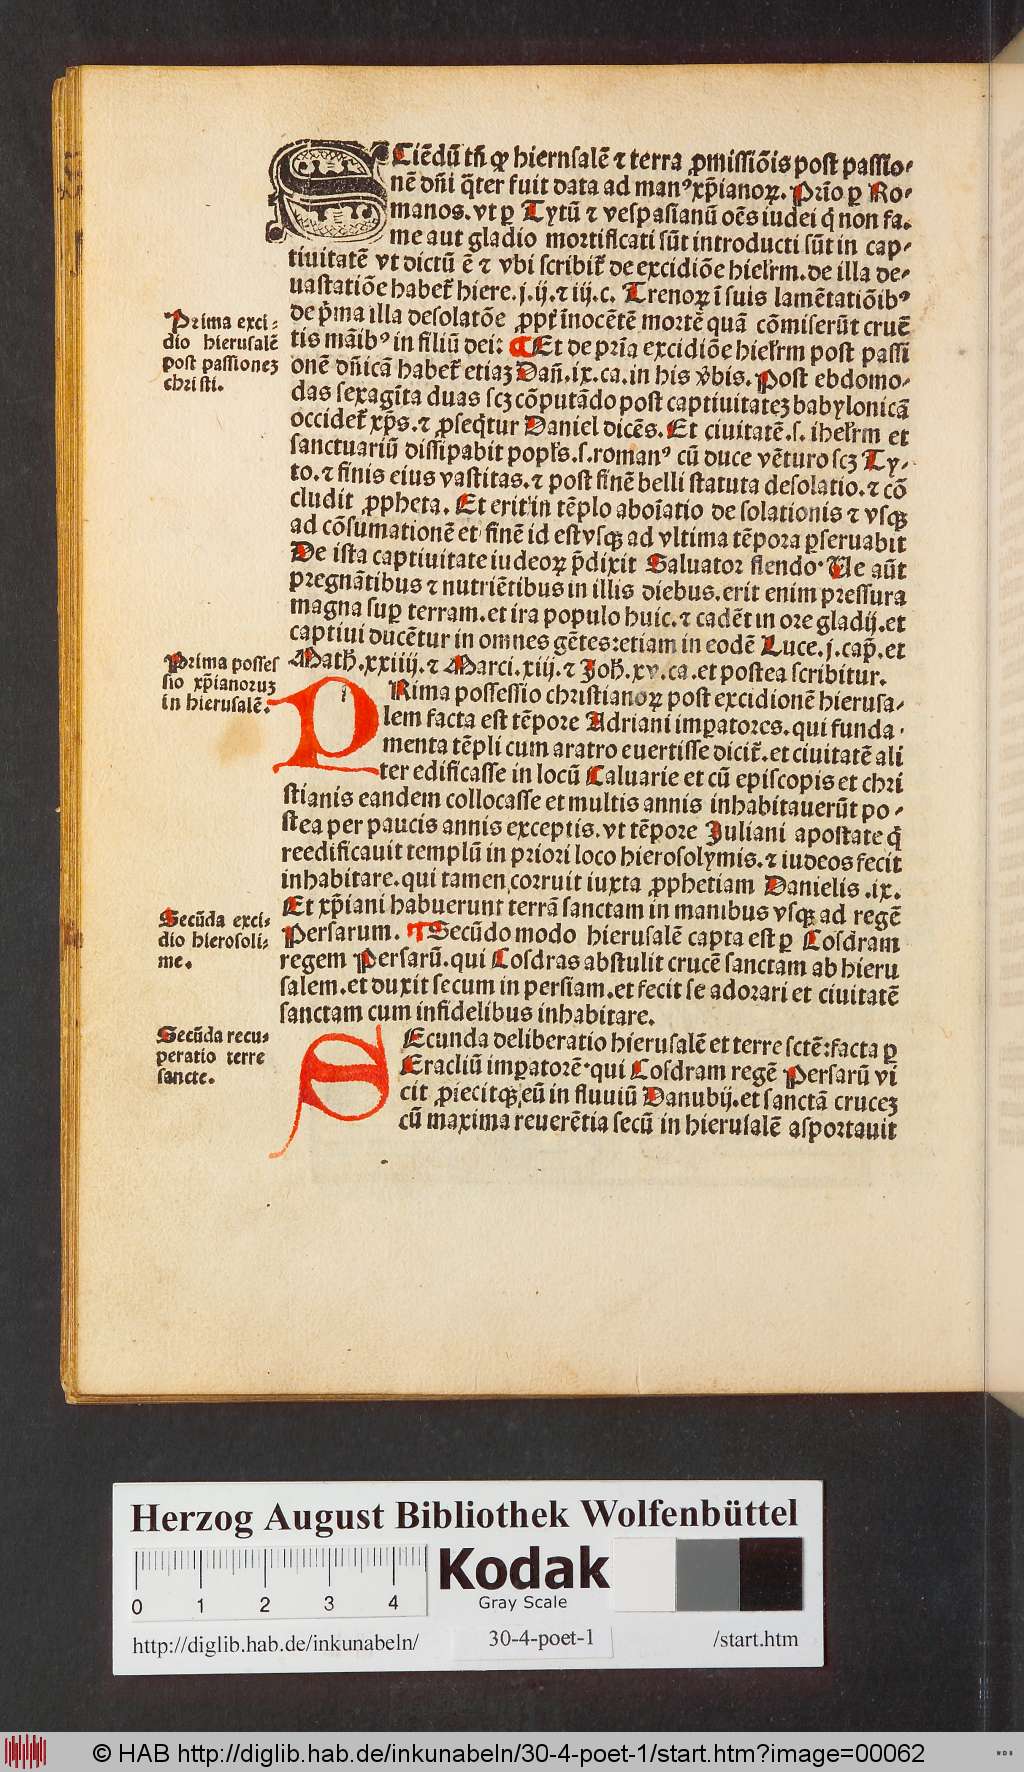 SCiēdū tn̄ ꝙ hiernsalē ⁊ terra ꝓmissiōis post passio-
nē dn̄i q̄ter fuit data ad manꝰ xp̄ianoꝝ. Prīo ꝑ Ro-
manos. vt ꝑ Tytū ⁊ vespasianū oēs iudei q̇ non fa-
me aut gladio mortificati sūt introducti sūt in cap-
tiuitatē vt dictū ē ⁊ vbi scribit̄ de excidiōe hieřm. de illa de-
uastatiōe habet̄ hiere. j. ij. ⁊ iij. c. Trenoꝝ ī suis lamētatiōibꝰ
de p̄ma illa desolatōe ꝓpt̄ īnocētē mortē quā cōmiserūt cruē
tis māibꝰ in filiū dei: Et de prīa excidiōe hieřm post passi
onē dn̄icā habet̄ etiaꝫ Dan̄. ix. ca. in his v̄bis. Post ebdomo-
das sexagīta duas scꝫ cōputādo post captiuitateꝫ babylonicā
occidet̄ xp̄s. ⁊ ꝓseq̄tur Daniel dicēs. Et ciuitatē. s. iheřm et
sanctuariū dissipabit popl̄s. s. romanꝰ cū duce vēturo scꝫ Ty-
to. ⁊ finis eius vastitas. ⁊ post finē belli statuta desolatio. ⁊ cō
cludit ꝓpheta. Et erit in tēplo aboīatio desolationis ⁊ vsqꝫ
ad cōsumationē et finē id est vsqꝫ ad vltima tēpora ꝑseruabit
De ista captiuitate iudeoꝝ p̄dixit Saluator flendo. Ue aūt
pregnātibus ⁊ nutriētibus in illis diebus. erit enim pressura
magna suꝑ terram. et ira populo huic. ⁊ cadēt in ore gladij. et
captiui ducētur in omnes gētes: etiam in eodē Luce. j. cap̄. et
Math̄. xxiiij. ⁊ Marci. xiij. ⁊ Joh̄. xv. ca. et postea scribitur.
Prima exci-
dio hierusalē
post passioneꝫ
christi.
PRima possessio christianoꝝ post excidionē hierusa-
lem facta est tēpore Adriani imꝑatores. qui funda-
menta tēpli cum aratro euertisse dicit̄. et ciuitatē ali
ter edificasse in locū Caluarie et cū episcopis et chri
stianis eandem collocasse et multis annis inhabitauerūt po-
stea per paucis annis exceptis. vt tēpore Juliani apostate q̇
reedificauit templū in priori loco hierosolymis. ⁊ iudeos fecit
inhabitare. qui tamen corruit iuxta ꝓphetiam Danielis. ix.
Et xp̄iani habuerunt terrā sanctam in manibus vsqꝫ ad regē
Persarum. Secūdo modo hierusalē capta est ꝑ Cosdram
regem Persarū. qui Cosdras abstulit crucē sanctam ab hieru
salem. et duxit secum in persiam. et fecit se adorari et ciuitatē
sanctam cum infidelibus inhabitare.
Prima posses
sio xp̄ianoruꝫ
in hierusalē.
Secūda exci-
dio hierosoli-
me.
SEcunda deliberatio hierusalē et terre sctē: facta ꝑ
Eracliū imꝑatorē. qui Cosdram regē Persarū vi
cit ꝓiecitqꝫ eū in fluuiū Danubij. et sanctā cruceꝫ
cū maxima reuerētia secū in hierusalē asportauit
Secūda recu-
peratio terre
sancte.
Herzog August Bibliothek Wolfenbüttel
0 1 2 3 4
Kodak
Gray Scale
http://diglib.hab.de/inkunabeln/ 30-4-poet-1 /start.htm
© HAB http://diglib.hab.de/inkunabeln/30-4-poet-1/start.htm?image=00062